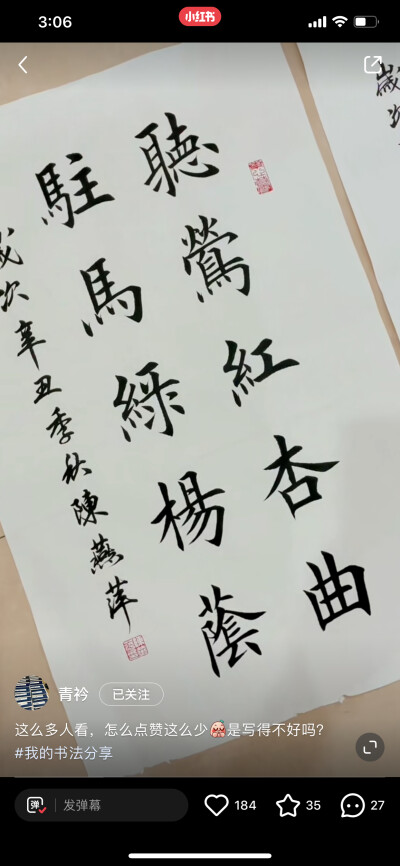 3:06
小红书
聽鶯紅杏曲
駐馬綠楊蔭
歲次辛丑季秋陳燕萍
歲次
青衿
已关注
这么多人看，怎么点赞这么少是写得不好吗？
#我的书法分享
弹
发弹幕
184
35
27